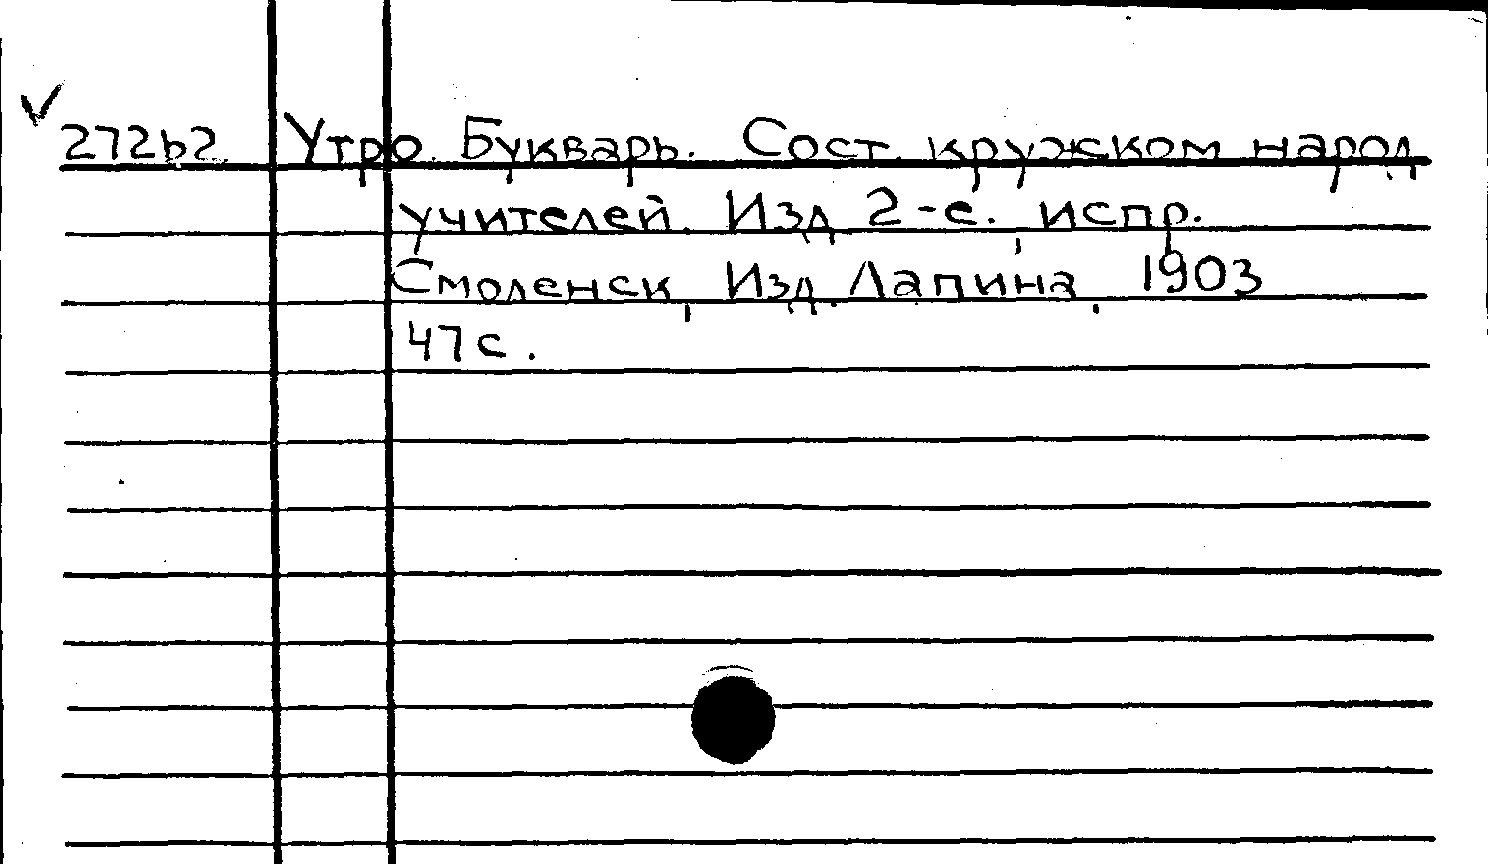 27262 Утро. Букварь. Сост. кружком народ.
учителей. Изд. 2-е, испр.
Смоленск, Изд. Лапина, 1903
47 с.